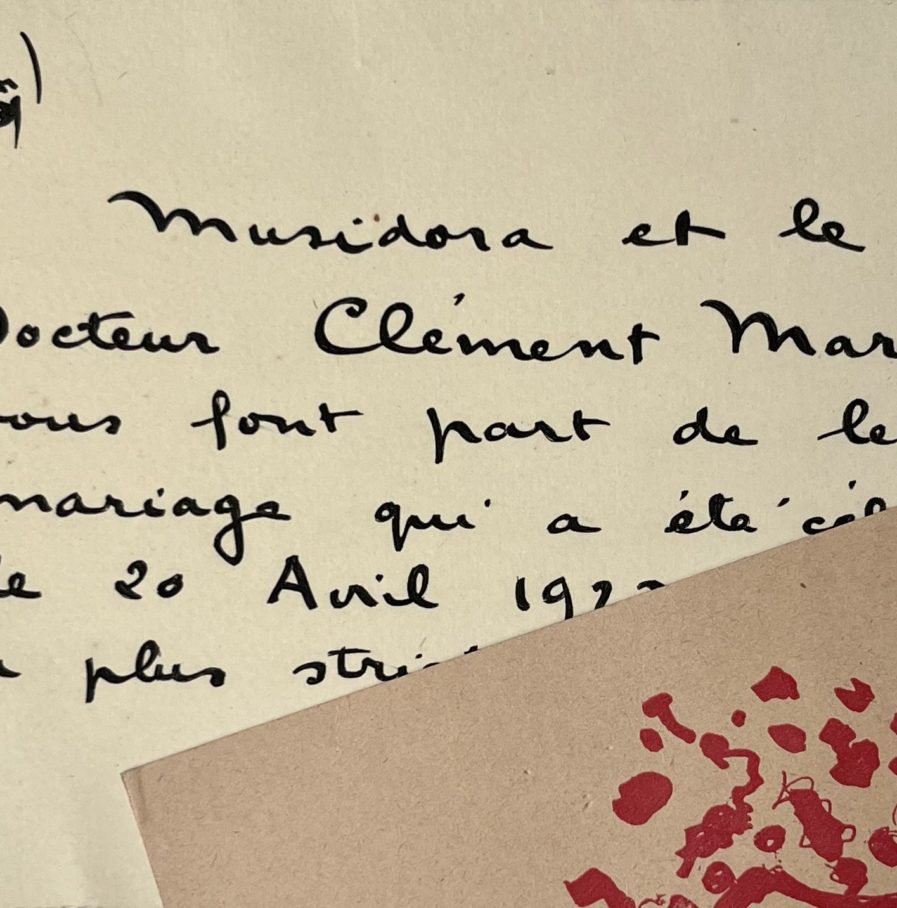 Musidora et le
Docteur Clément Mar
vous font part de le
mariage qui a été cél
le 20 Avril 192
plus stri